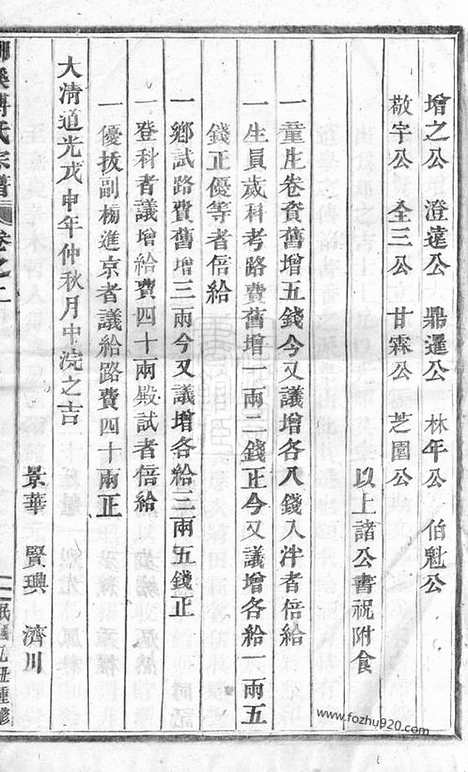 增之公 澄遠公 鼎暹公 林年公 伯魁公
敬宇公 全三公 甘霖公 芝園公
以上諸公書祝附食
一童生卷資舊增五錢今又議增各八錢入泮者倍給
一生員歲科考路費舊增一兩二錢正今又議增各給一兩五
錢正優等者倍給
一鄉試路費舊增三兩今又議增各給三兩五錢正
一登科者議增給費四十兩殿試者倍給
一優拔副榜進京者議給路費四十兩正
大清道光戊申年仲秋月中浣之吉
景華 賢璵 濟川
溪傅氏宗譜 卷之二
民國 重修
www.fozhu920.com